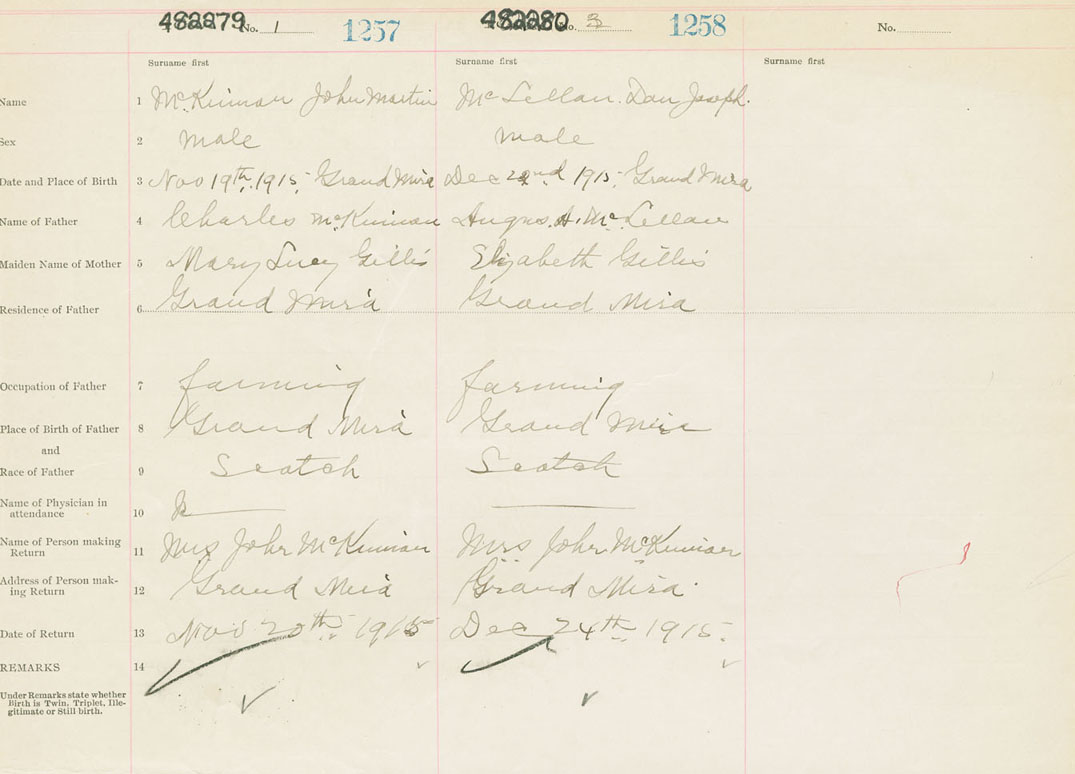 482279 No. 1 1257 482280 No. 3 1258 No.
Surname first Surname first Surname first
Name 1 McKinnon John Martin McLellan. Dan Joseph.
Sex 2 male male
Date and Place of Birth 3 Nov 19th, 1915 Grand Mira Dec 22nd 1915. Grand Mira
Name of Father 4 Charles McKinnon Angus. A. McLellan
Maiden Name of Mother 5 Mary Lucy Gillis Elizabeth Gillis
Residence of Father 6 Grand Mira Grand Mira
Occupation of Father 7 farming farming
Place of Birth of Father 8 Grand Mira Grand Mira
and
Race of Father 9 Scotch Scotch
Name of Physician in
attendance 10
Name of Person making
Return 11 Mrs John McKinnon Mrs John McKinnon
Address of Person mak-
ing Return 12 Grand Mira Grand Mira.
Date of Return 13 Nov 20th, 1915 Dec 24th, 1915.
REMARKS 14
Under Remarks state whether
Birth is Twin, Triplet, Ille-
gitimate or Still birth.